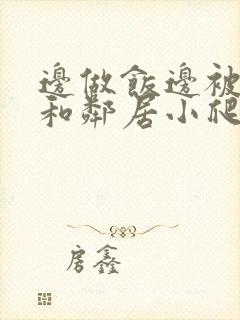 邊做飯邊被
和鄰居小爬
房鑫